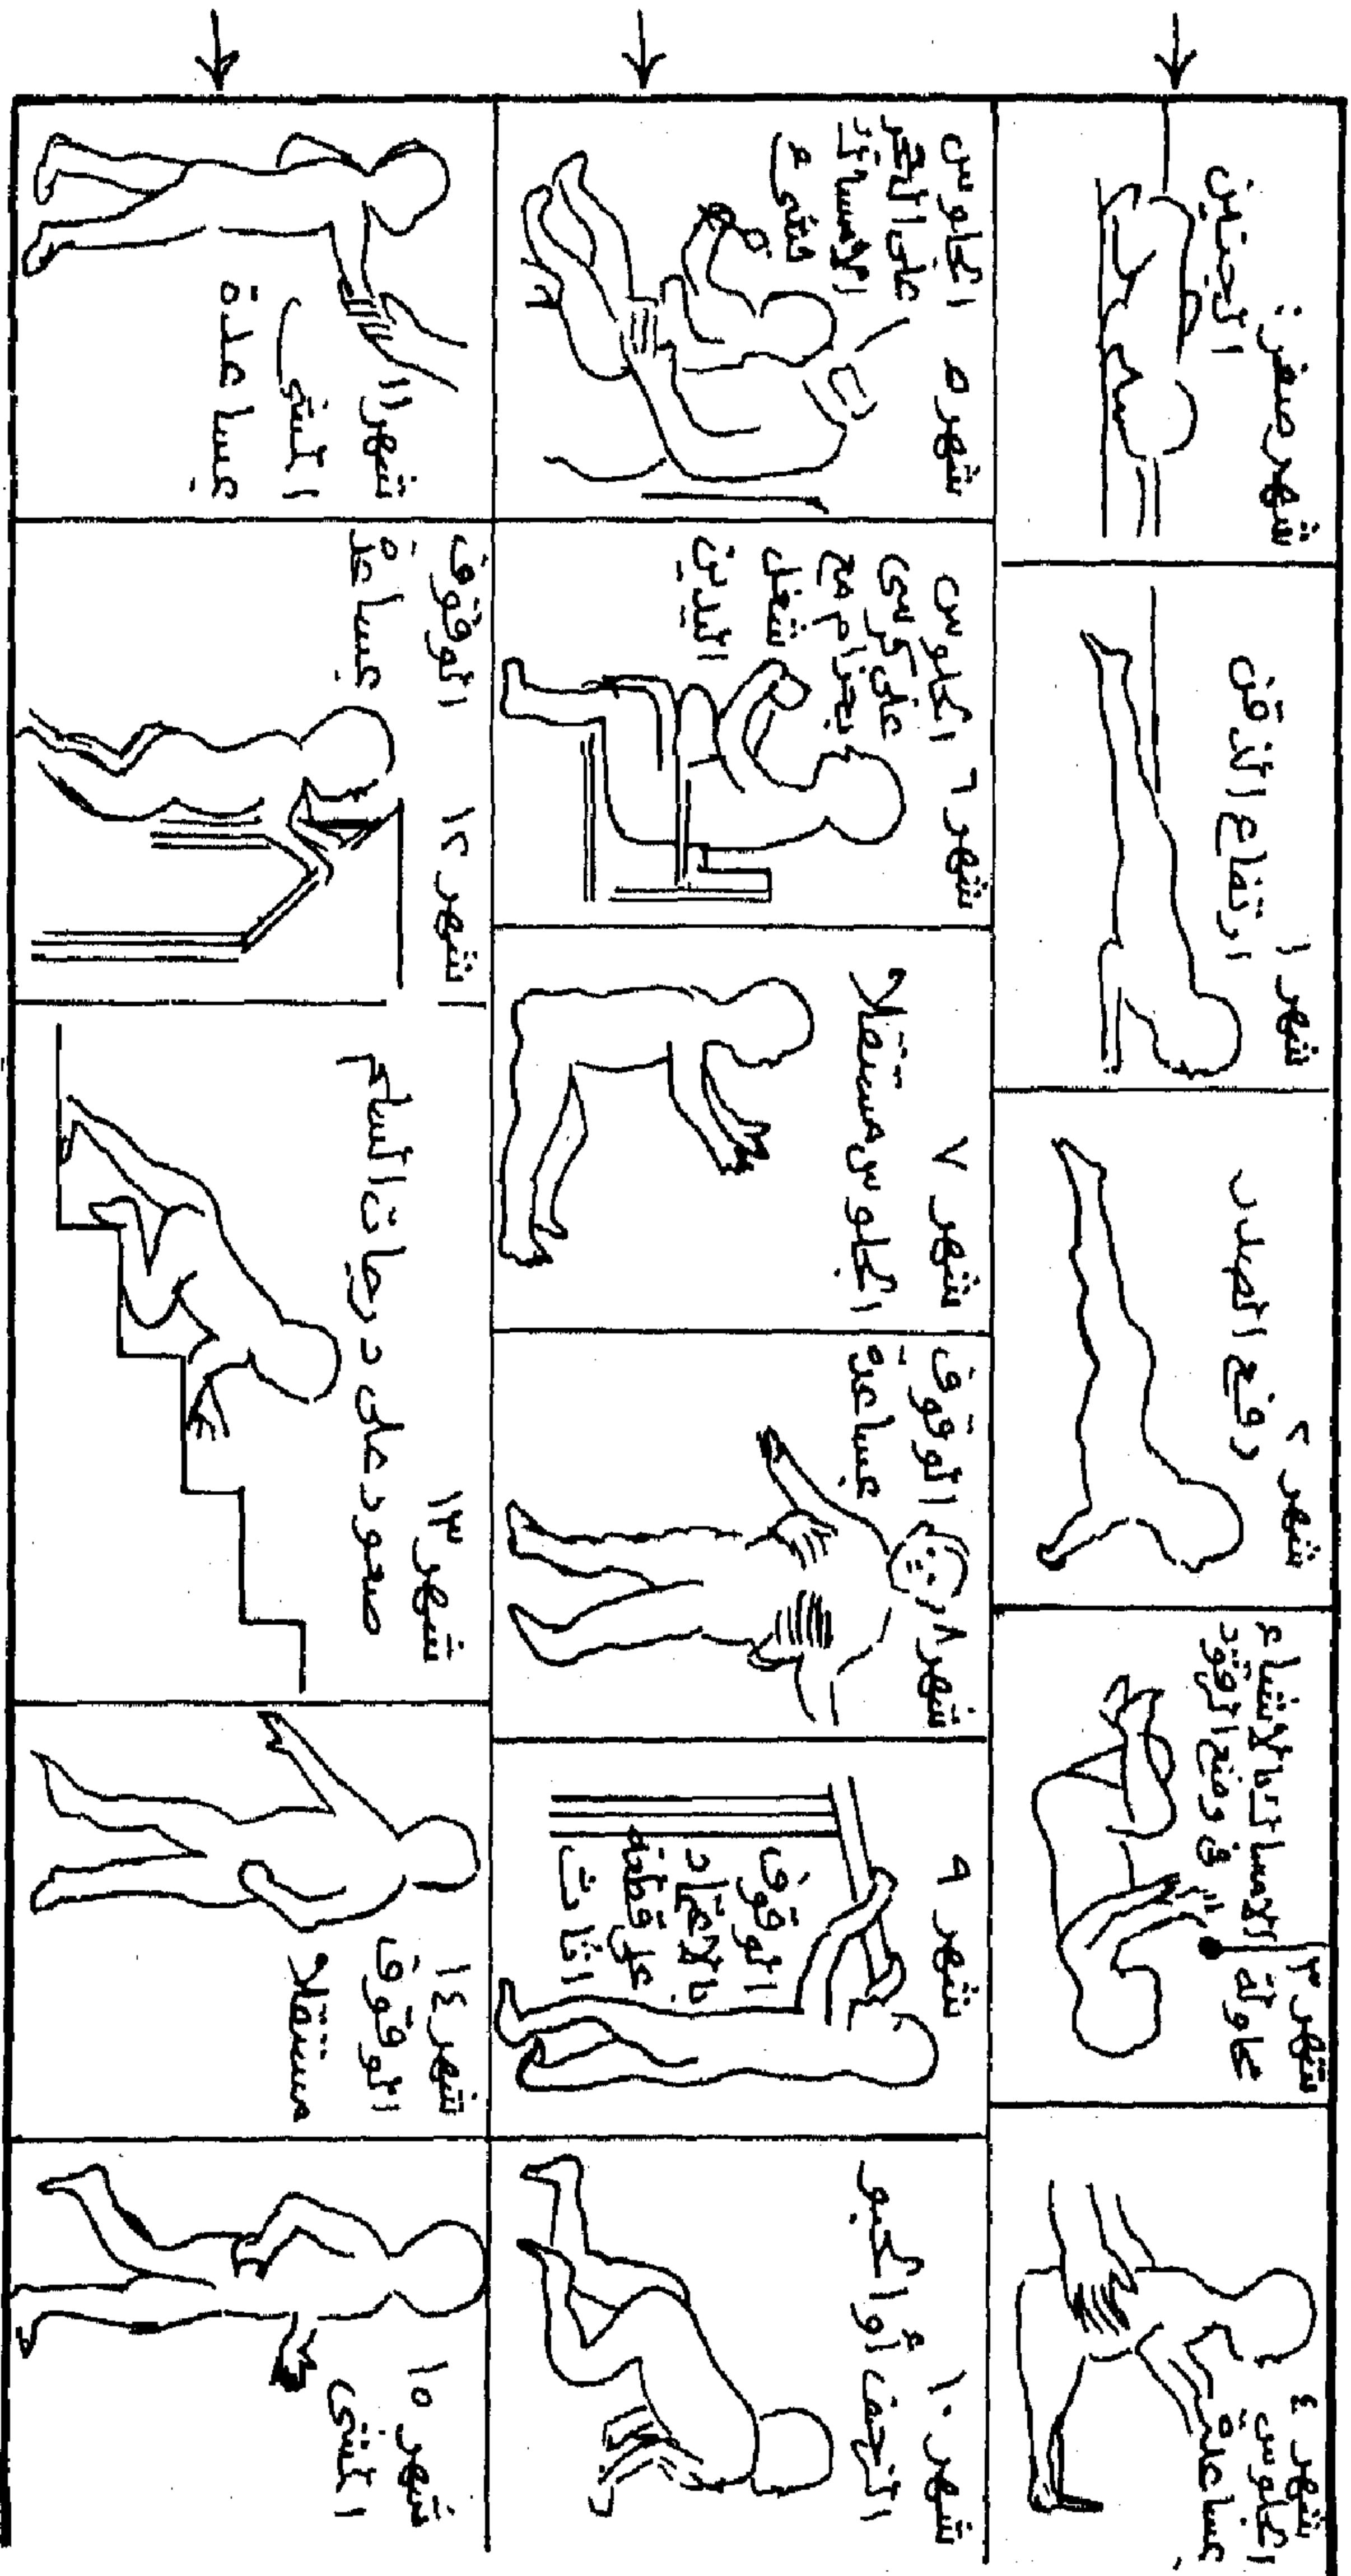 شهر صفر:
الجنين
شهر ١
ارتفاع الذقن
شهر ٢
رفع الصدر
شهر ٣
محاولة الامساك بالاشياء
في وضع الرقود
شهر ٤
الجلوس
بمساعدة
شهر ٥
الجلوس
على الحجر
الامساك
بشيء
شهر ٦
الجلوس
على كرسي
بحزام مع
شغل
اليدين
شهر ٧
الجلوس مستقلا
شهر ٨
الوقوف
بمساعدة
شهر ٩
الوقوف
بالاعتماد
على قطعة
اثاث
شهر ١٠
الزحف أو الحبو
شهر ١١
المشى
بمساعدة
شهر ١٢
الوقوف
بمساعدة
شهر ١٣
صعود على درجات السلم
شهر ١٤
الوقوف
مستقلا
شهر ١٥
المشى